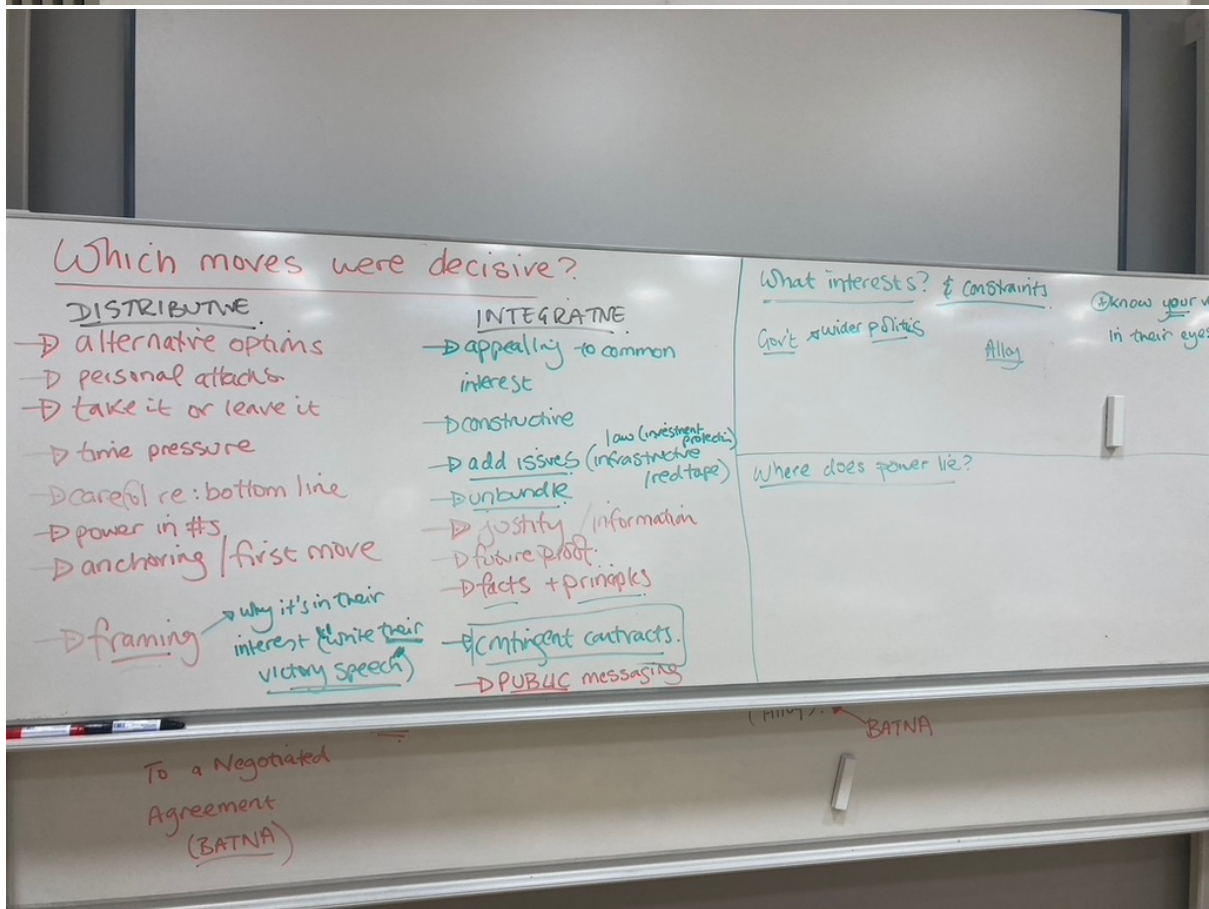 Which moves were decisive?
DISTRIBUTIVE
→ alternative options
→ personal attacks
→ take it or leave it
→ time pressure
→ careful re: bottom line
→ power in #s
→ anchoring / first move
→ framing
→ why it's in their
interest ("write their
victory speech")
INTEGRATIVE
→ appealing to common
interest
→ constructive
law (investment
protection)
→ add issues (infrastructure
/red tape)
→ unbundle
→ justify / information
→ future proof.
→ facts + principles
→ contingent contracts.
→ PUBLIC messaging
What interests? & constraints
Gov't → wider politics
Alloy
know your
in their eyes
Where does power lie?
To a Negotiated
Agreement
(BATNA)
BATNA